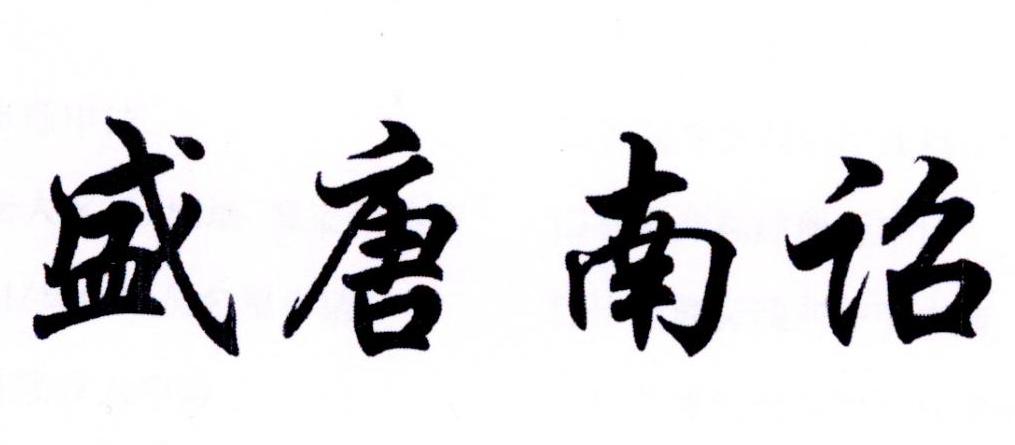 盛唐南诏